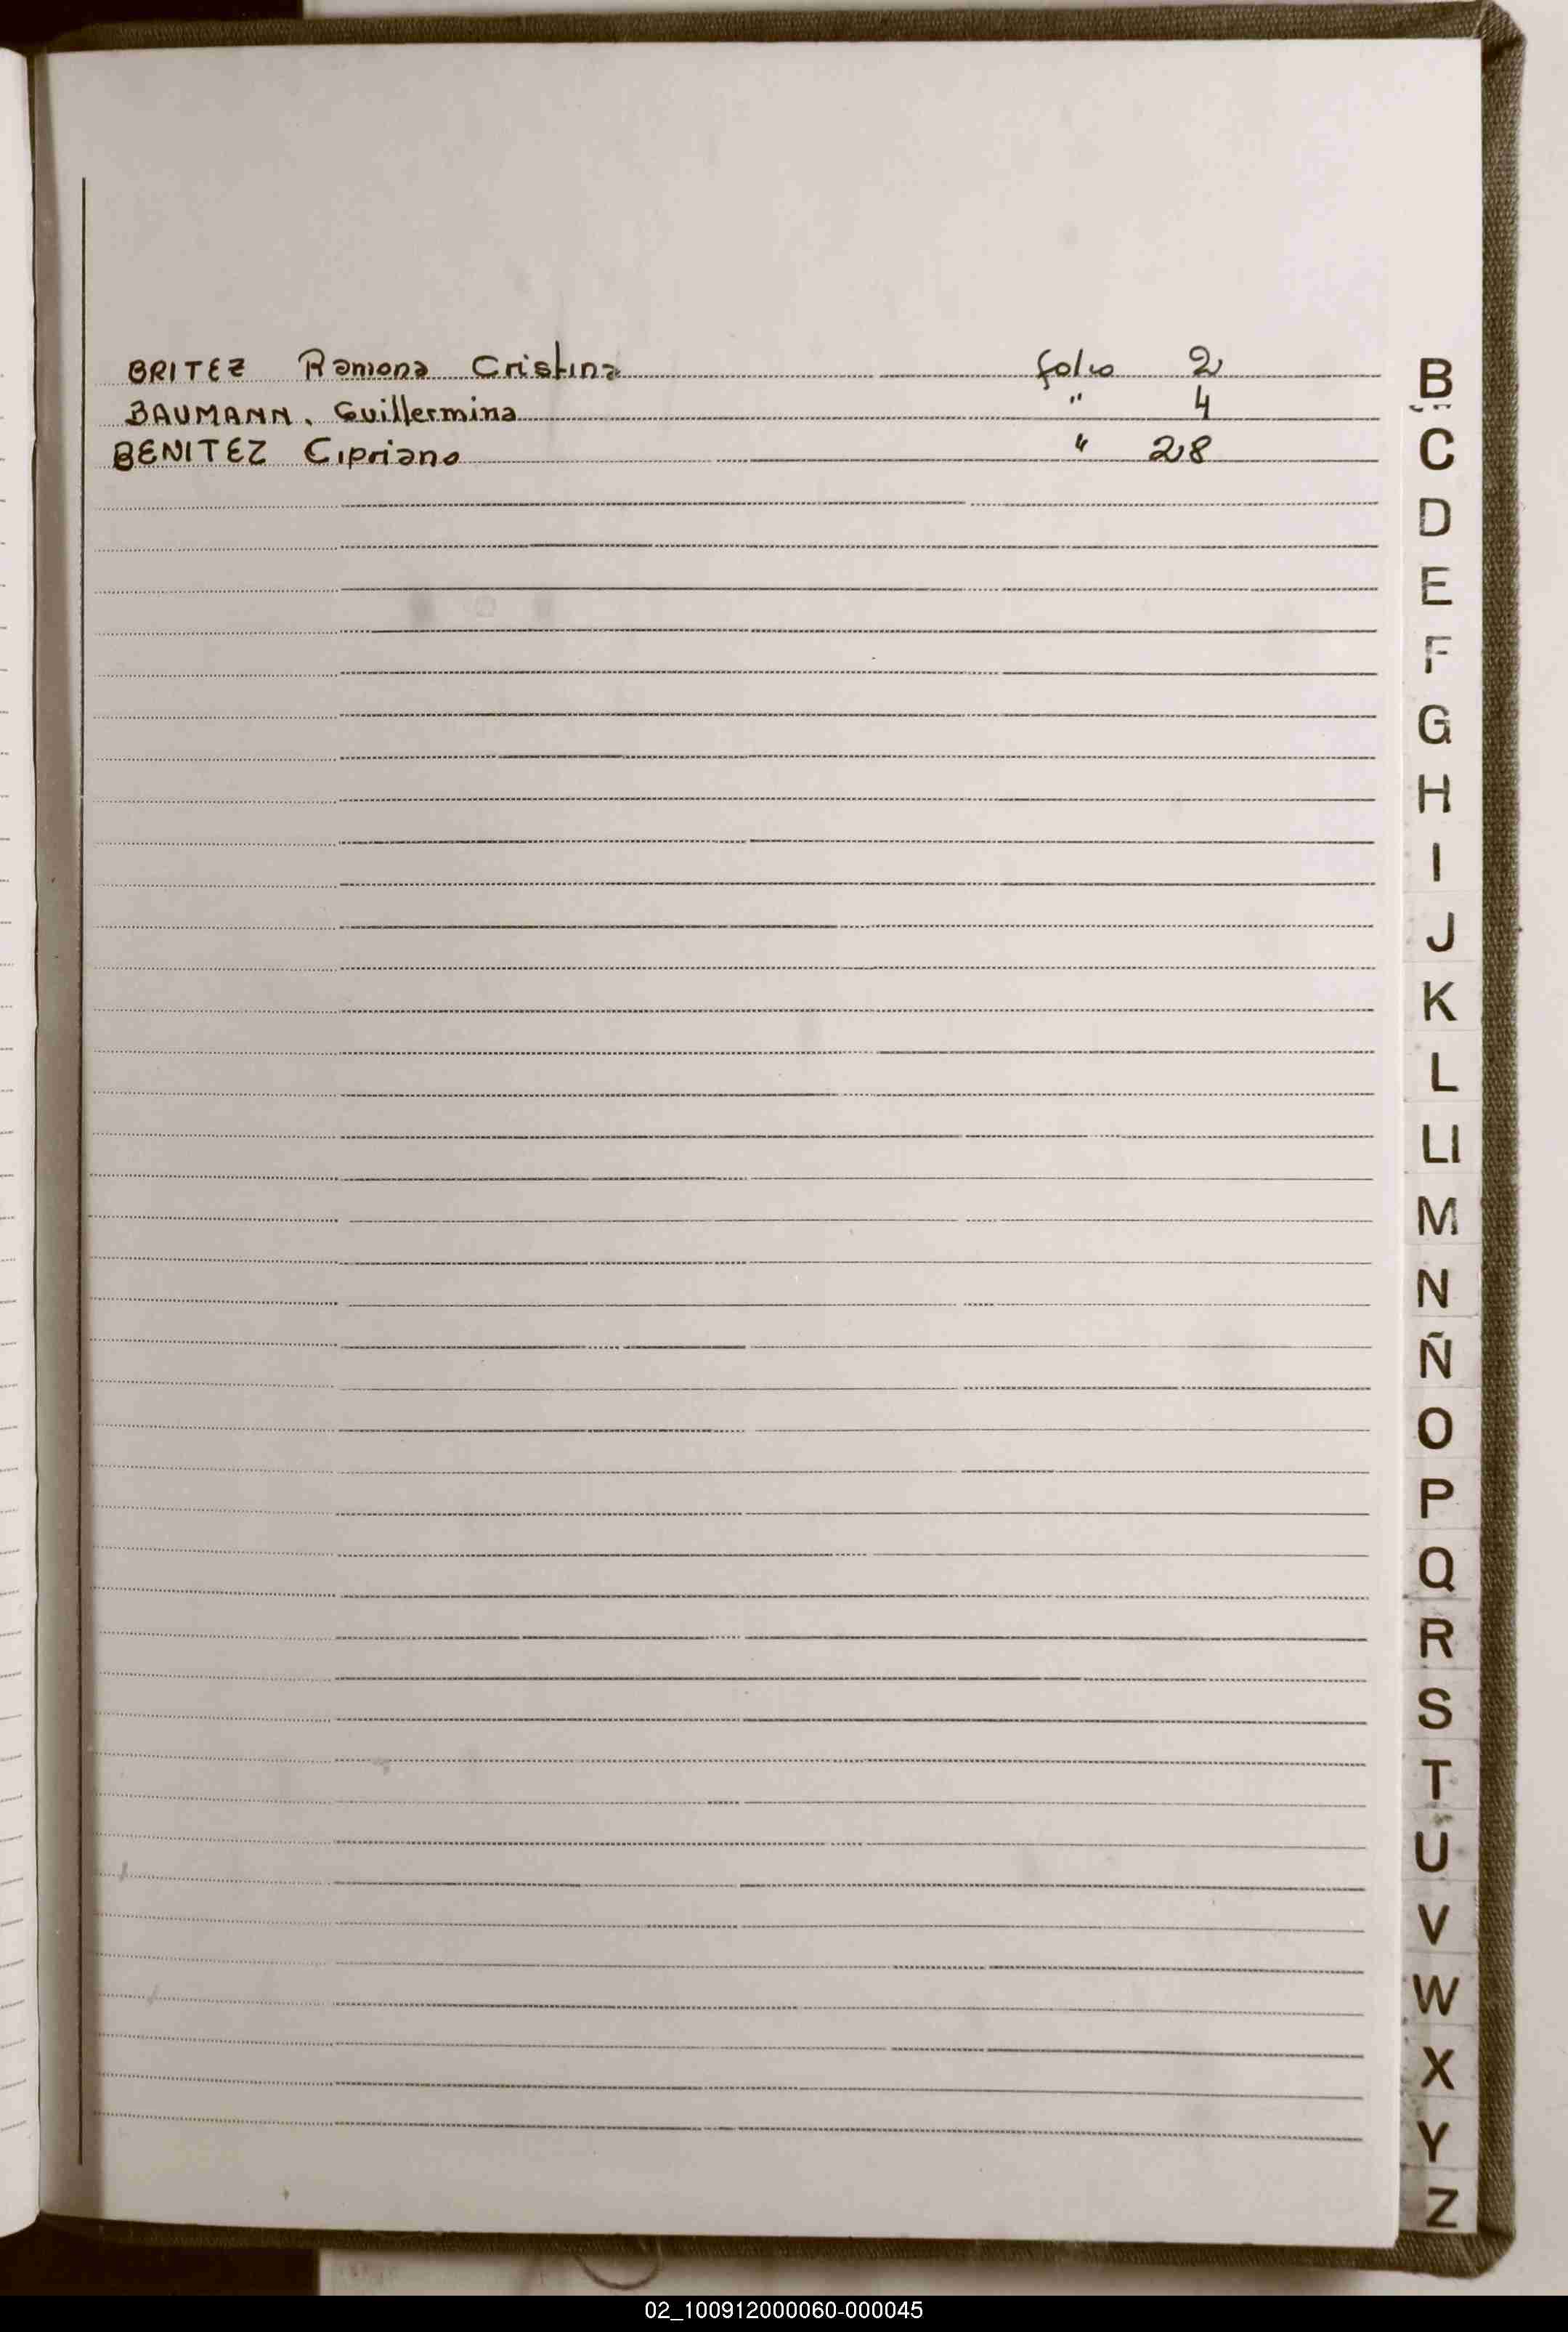 BRITEZ Ramona Cristina folio 2
BAUMANN, Guillermina " 4
BENITEZ Cipriano " 28
B
C
D
E
F
G
H
I
J
K
L
Ll
M
N
Ñ
O
P
Q
R
S
T
U
V
W
X
Y
Z
02_100912000060-000045